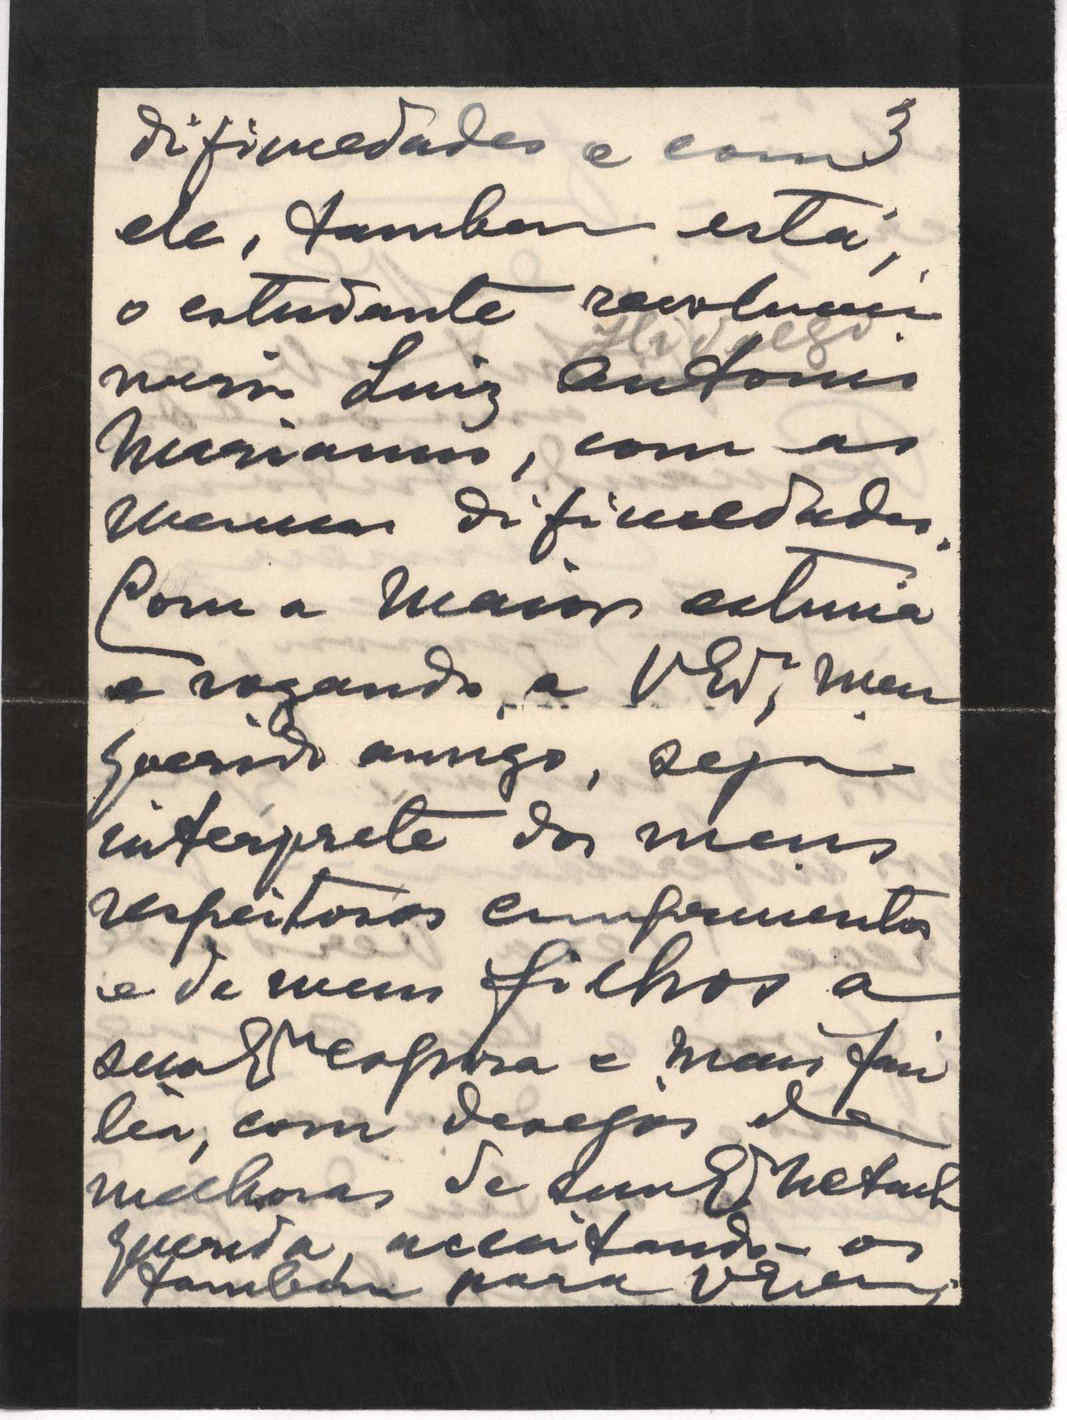 dificuldades e com 3
ele, tambem está,
o estudante revolucio
nario Luiz Antonio
Marianno, com as
mesmas dificuldades.
Com a maior estima
e rogando, a VEx, meu
querido amigo, seja
intérprete dos meus
respeitosos cumprimentos
e de meus filhos a
sua Exma esposa e mais fami
lia, com desejos de
melhoras de sua Exma
querida, acceitando-os
tambem para VExcia,